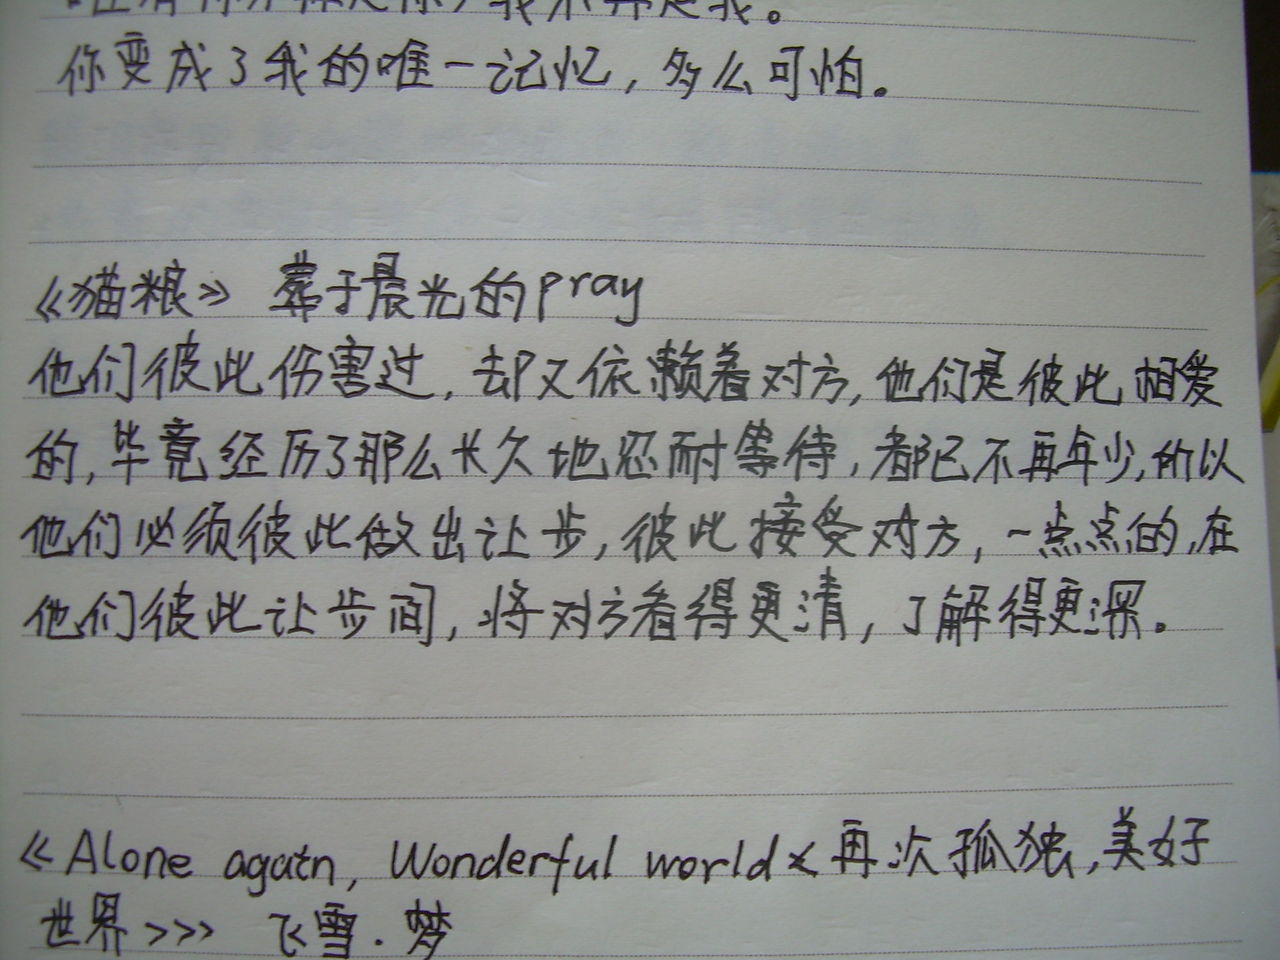 你变成了我的唯一记忆，多么可怕。
《猫粮》 葬于晨光的pray
他们彼此伤害过，却又依赖着对方，他们是彼此相爱
的，毕竟经历了那么长久地忍耐等待，都已不再年少，所以
他们必须彼此做出让步，彼此接受对方，一点点的，在
他们彼此让步间，将对方看得更清，了解得更深。
《Alone again, Wonderful world<再次孤独，美好
世界>>> 飞雪.梦